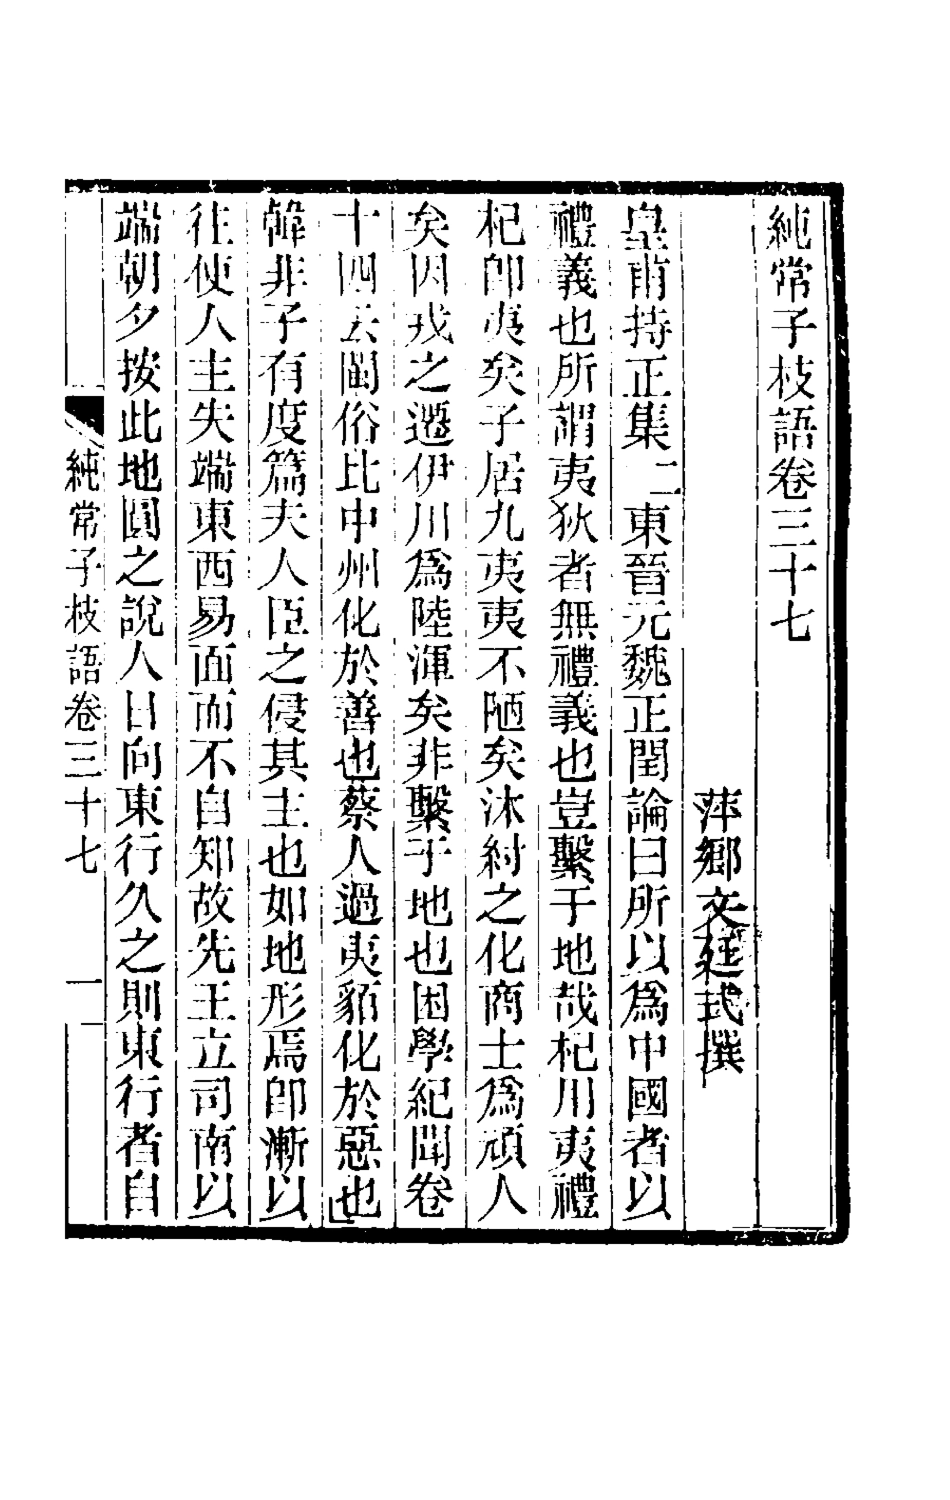 純常子枝語卷三十七
萍鄉文廷式撰
皇甫持正集二東晉元魏正閏論曰所以爲中國者以
禮義也所謂夷狄者無禮義也豈繫于地哉杞用夷禮
杞卽夷矣子居九夷夷不陋矣沐紂之化商士爲頑人
矣因戎之遷伊川爲陸渾矣非繫于地也困學紀聞卷
十四云閩俗比中州化於善也蔡人過夷貊化於惡也
韓非子有度篇夫人臣之侵其主也如地形焉卽漸以
往使人主失端東西易面而不自知故先王立司南以
端朝夕按此地圓之說人日向東行久之則東行者自
純常子枝語卷三十七 一